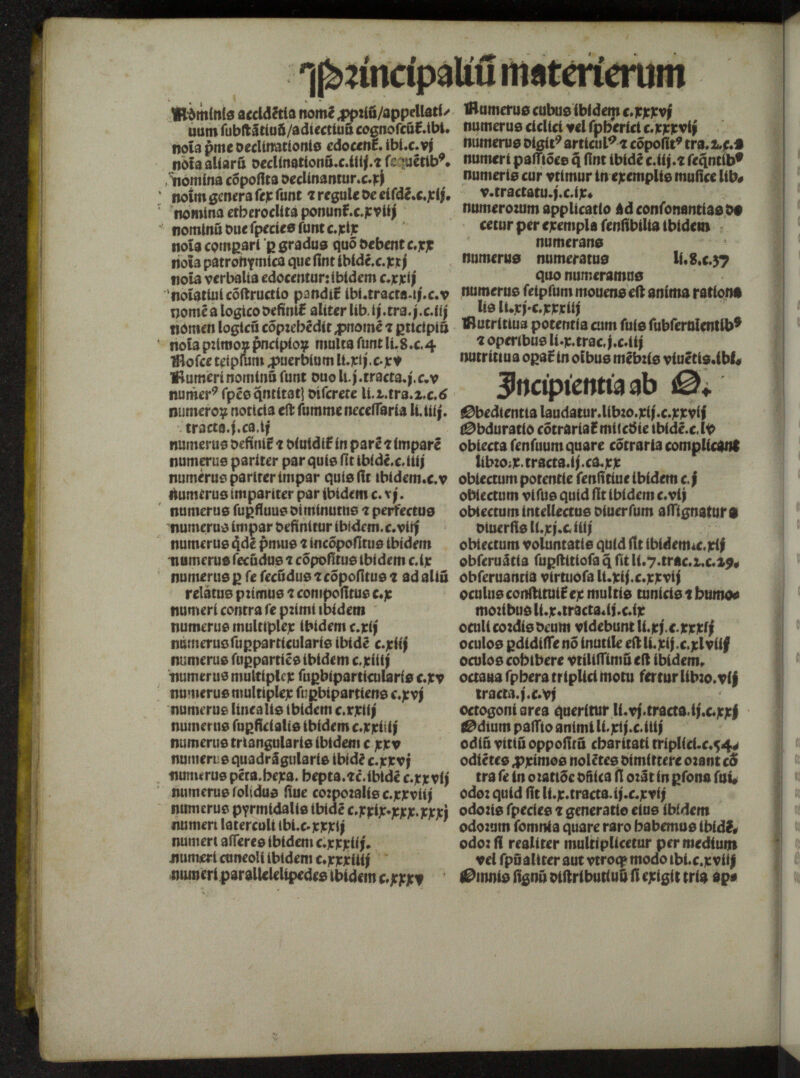 Principaliū materierum
Nominis accidētia nomē ꝓpriū/appellati⸗
uum substātiuū/adiectiuū cognoscūt᷑.ibi.
noīa p̄me declinationis edocent᷑. ibi.c.vj
noīa aliarū declinationū.c.iiij.⁊ sequētibꝰ.
nomina cōposita declinantur.c.xj
noīm genera sex sunt ⁊ regule de eisdē.c.xij.
nomina etheroclita ponunt᷑.c.xviij
nominū due species sunt c.xix
noīa compari ꝑ gradus quō debent c.xx
noīa patronymica que sint ibidē.c.xxj
noīa verbalia edocentur: ibidem c.xxij
noīatiui cōstructio pandit᷑ ibi.tracta.ij.c.v
nomē a logico definit᷑ aliter lib.ij.tra.j.c.iij
nomen logicū cōprehēdit ꝓnomē ⁊ ꝑticipiū
noīa primoꝝ pͥncipioꝝ multa sunt li.8.c.4
Nosce teipsum ꝓuerbium li.xij.c.xv
Numeri nominū sunt duo li.j.tracta.j.c.v
numerꝰ spēs qͣntitatꝭ discrete li.2.tra.2.c.6
numeroꝝ noticia est summe necessaria li.iiij.
tracta.j.ca.ij
numerus definit᷑ ⁊ diuidit᷑ in parē ⁊ imparē
numerus pariter par quis sit ibidē.c.iiij
numerus pariter impar quis sit ibidem.c.v
Numerus impariter par ibidem c.vj.
numerus suꝑfluus diminutus ⁊ perfectus
numerus impar definitur ibidem.c.viij
numerus qͥdē pͥmus ⁊ incōpositus ibidem
numerus secūdus ⁊ cōpositus ibidem c.ix
numerus ꝑ se secūdus ⁊ cōpositus ⁊ ad aliū
relatus primus ⁊ compositus c.x
numeri contra se primi ibidem
numerus multiplex ibidem c.xij
numerus suꝑparticularis ibidē c.xiij
numerus suꝑpartiēs ibidem c.xiiij
numerus multiplex suꝑbiparticularis c.xv
numerus multiplex suꝑbipartiens c.xvj
numerus linealis ibidem c.xxiij
numerus suꝑficialis ibidem c.xxiiij
numerus triangularis ibidem c xxv
numerus quadrāgularis ibidē c.xxvj
numerus pēta.hexa. hepta.⁊c̄.ibidē c.xxvij
numerus solidus siue corporalis c.xxviij
numerus pyrmidalis ibidē c.xxix.xxx.xxxj
numeri laterculi ibi.c.xxxij
numeri asseres ibidem c.xxxiij.
numeri cuneoli ibidem c.xxxiiij
numeri parallelelipedes ibidem c.xxxv
Numerus cubus ibidem c.xxxvj
numerus ciclici vel spherici c.xxxvij
numerus digitꝰ articulꝰ ⁊ cōpositꝰ tra.2.c.2
numeri passiōes q̄ sint ibidē c.iij.⁊ seqn̄tibꝰ
numeris cur vtimur in exemplis musice lib.
v.tractatu.j.c.ix.
numerorum applicatio ad consonantias do
cetur per exempla sensibilia ibidem
numerans
numerus numeratus li.8.c.37
quo numeramus
numerus seipsum mouens est anima rationa
lis li.xj.c.xxxiij
Nutritiua potentia cum suis subseruientibꝰ
⁊ operibus li.x.trac.j.c.iij
nutritiua opat᷑ in oībus mēbris viuētis.ibi.
Incipientia ab O.
Obedientia laudatur.libro.xij.c.xxvij
Obduratio cōtrariat᷑ mi\~sc̄die ibidē.c.lv
obiecta sensuum quare cōtraria complicant
libro.x.tracta.ij.ca.xx
obiectum potentie sensitiue ibidem c.j
obiectum visus quid sit ibidem c.vij
obiectum intellectus diuersum assignatur a
diuersis li.xj.c.iiij
obiectum voluntatis quid sit ibidem.c.xij
obseruātia suꝑstitiosa q̄ sit li.7.trac.2.c.29.
obseruantia virtuosa li.xij.c.xxvij
oculus constituit᷑ ex multis tunicis ⁊ humo⸗
moribus li.x.tracta.ij.c.ix
oculi cordis deum videbunt li.xj.c.xxxij
oculos ꝑdidisse nō inutile est li.xij.c.xlviij
oculos cohibere vtilissimū est ibidem.
octaua sphera triplici motu fertur libro.vij
tracta.j.c.vj
octogoni area queritur li.vj.tracta.ij.c.xxj
Odium passio animi li.xij.c.iiij
odiū vitiū oppositū charitati triplici.c.54.
odiētes ꝓximos nolētes dimittere orant cō
tra se in oratiōe dn̄ica si orāt in ꝑsona sui.
odor quid sit li.x.tracta.ij.c.xvij
odoris species ⁊ generatio eius ibidem
odorum somnia quare raro habemus ibidē.
odor si realiter multiplicetur per medium
vel spūaliter aut vtroqꝫ modo ibi.c.xviij
Omnis signū distributiuū si exigit tria ap⸗